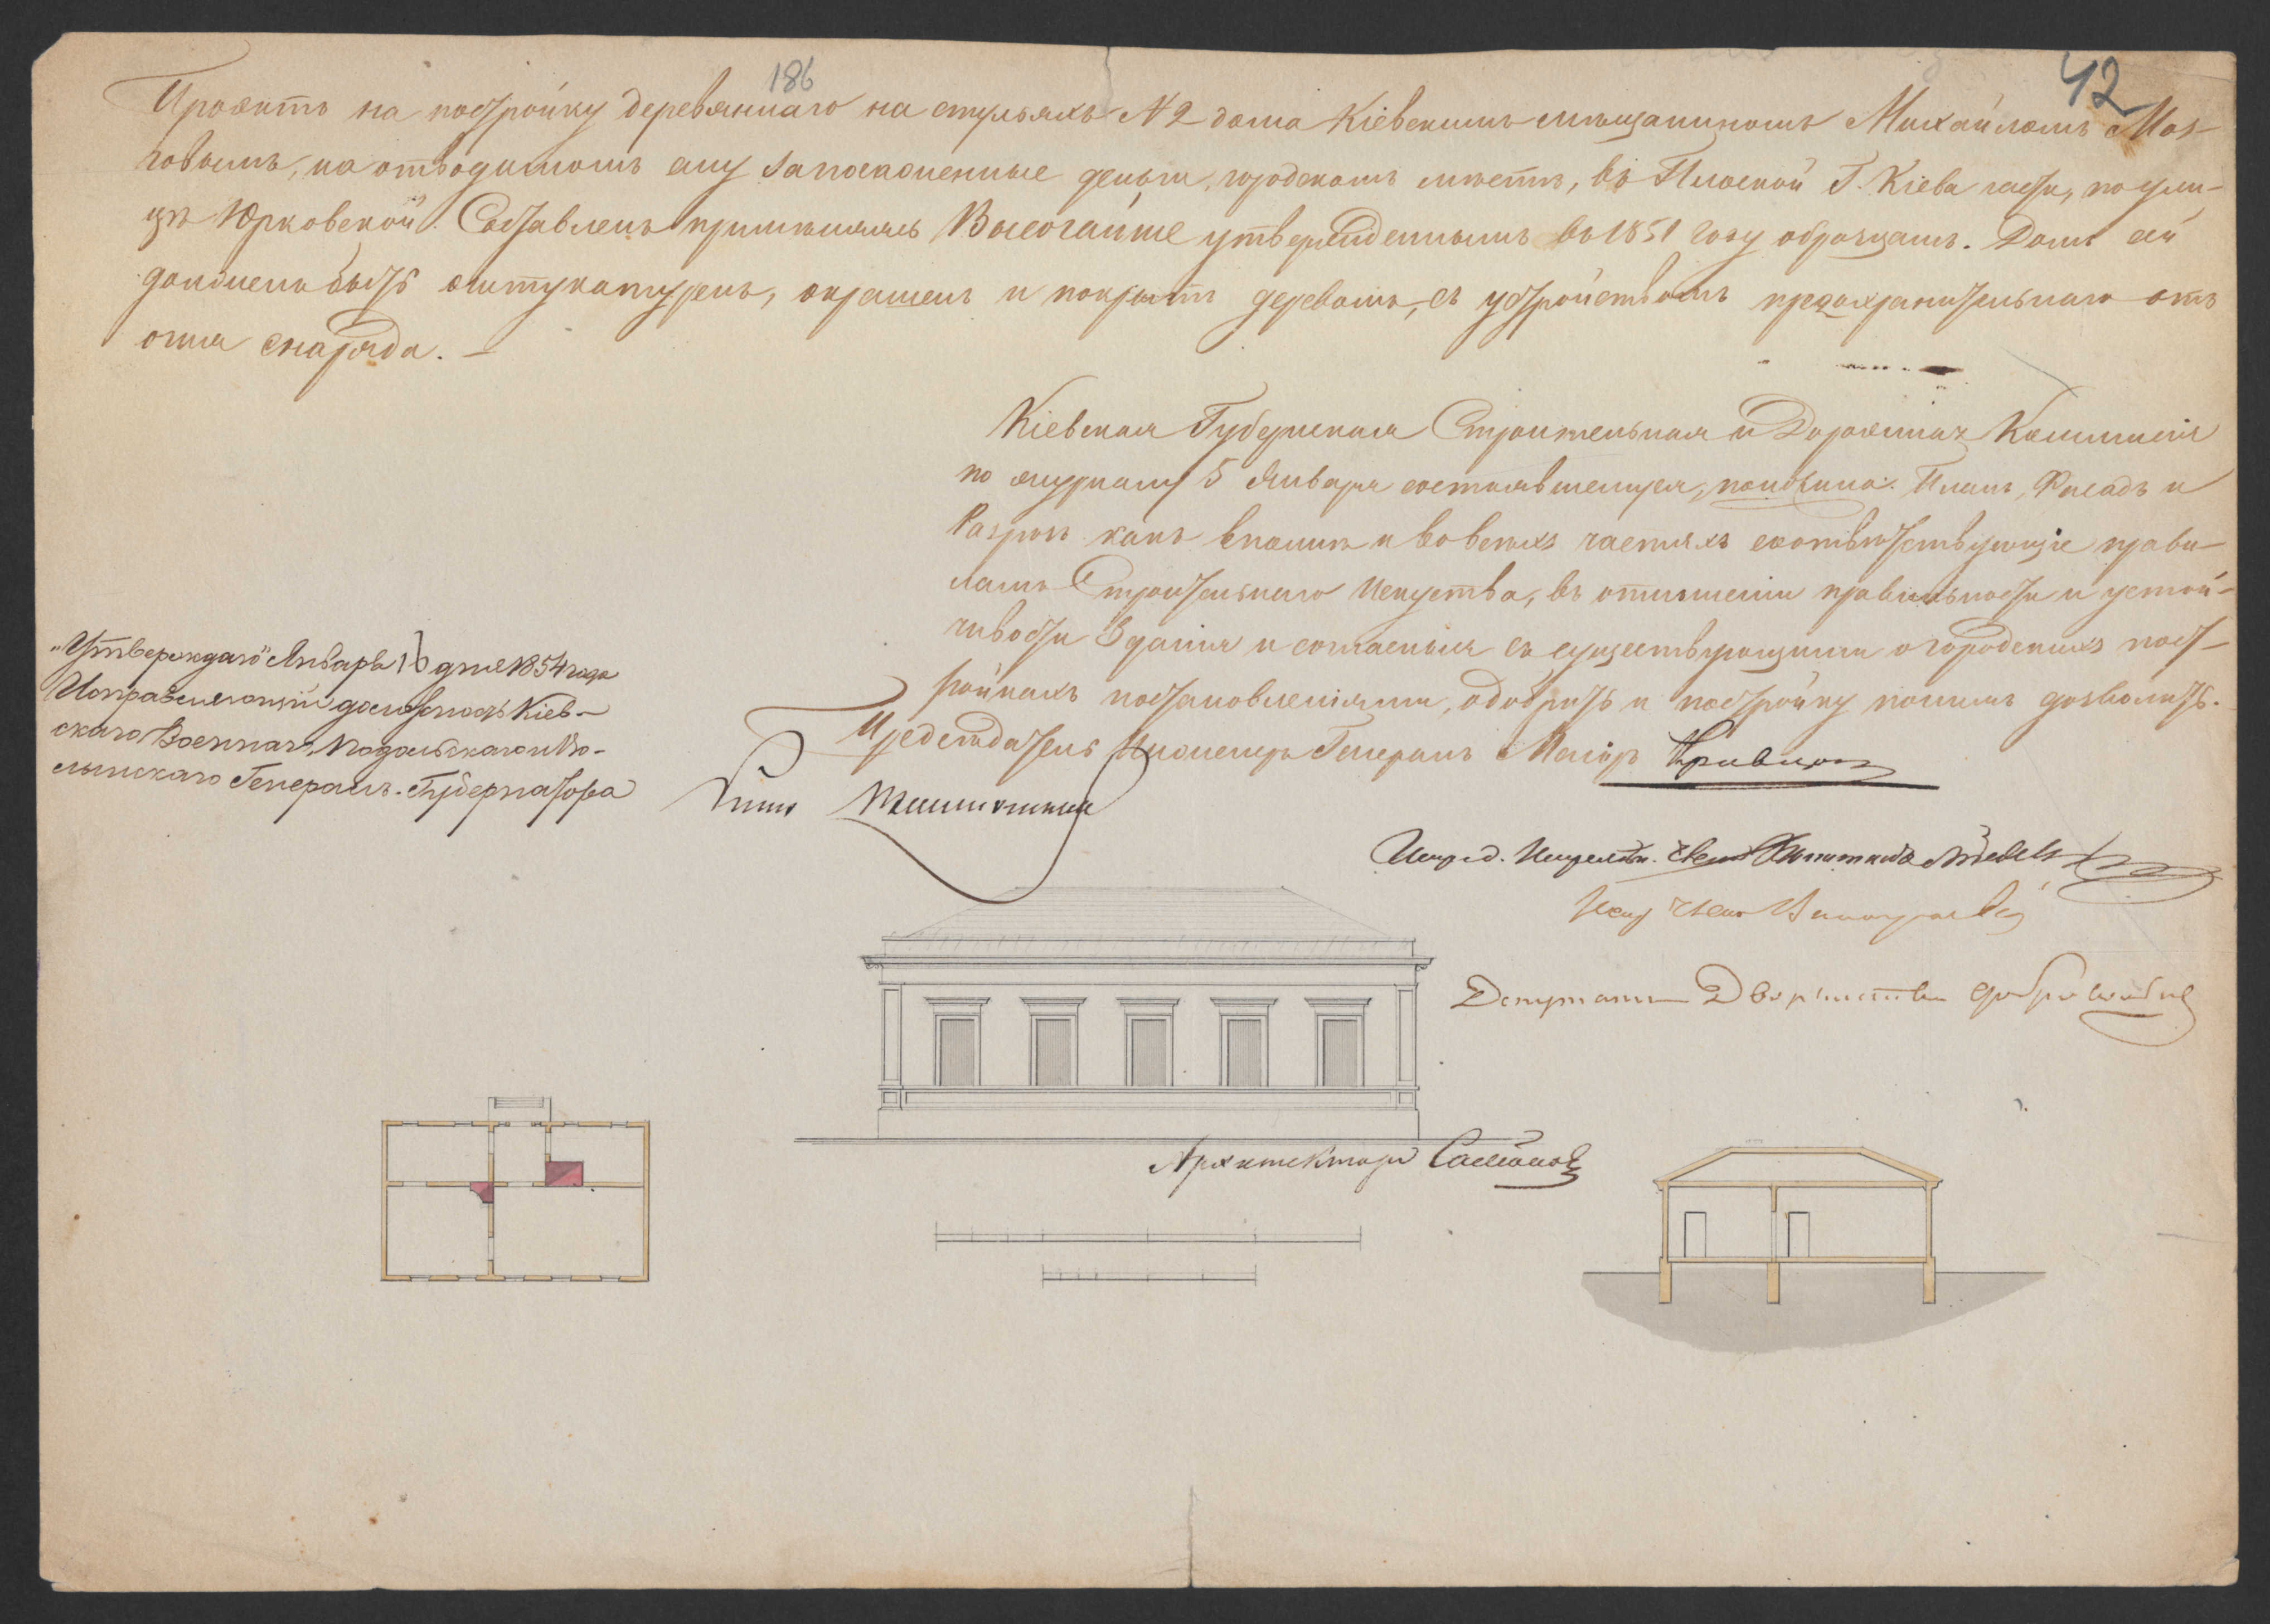 186
42
Проэктъ на постройку деревяннаго на стульяхъ № 2 дома Кіевскимъ мѣщаниномъ Михайломъ Моз-
говымъ, на отводимомъ ему за поскопенные деньги, городскомъ мѣстѣ, въ Плоской Г. Кіева части, по ули-
цѣ Юрковской. Составленъ примѣняясь Высочайше утвержденнымъ въ 1851 году образцамъ. Домъ сей
долженъ быть оштукатуренъ, окрашенъ и покрытъ деревомъ, съ устройствомъ предохранительнаго отъ
огня снаряда. —
Кіевская Губернская Строительная и Дорожная Коммисія
по журналу 5 Января состоявшемуся, положила: Планъ, Фасадъ и
Разрѣзъ какъ вполнѣ и во всѣхъ частяхъ соотвѣтствующіе прави-
ламъ Строительнаго Искуства, въ отношеніи правильности и устой-
чивости Зданія и согласныя съ существующими о городскихъ пост-
ройкахъ постановленіями, одобрить и постройку по нимъ дозволить.
Председатель Инженеръ Генералъ Маіоръ
„Утверждаю" Январь 16 дня 1854 года
Исправляющій должность Кіев-
скаго Военнаго, Подольскаго и Во-
лынскаго Генералъ-Губернатора
Депутатъ Дворянства
Архитекторъ